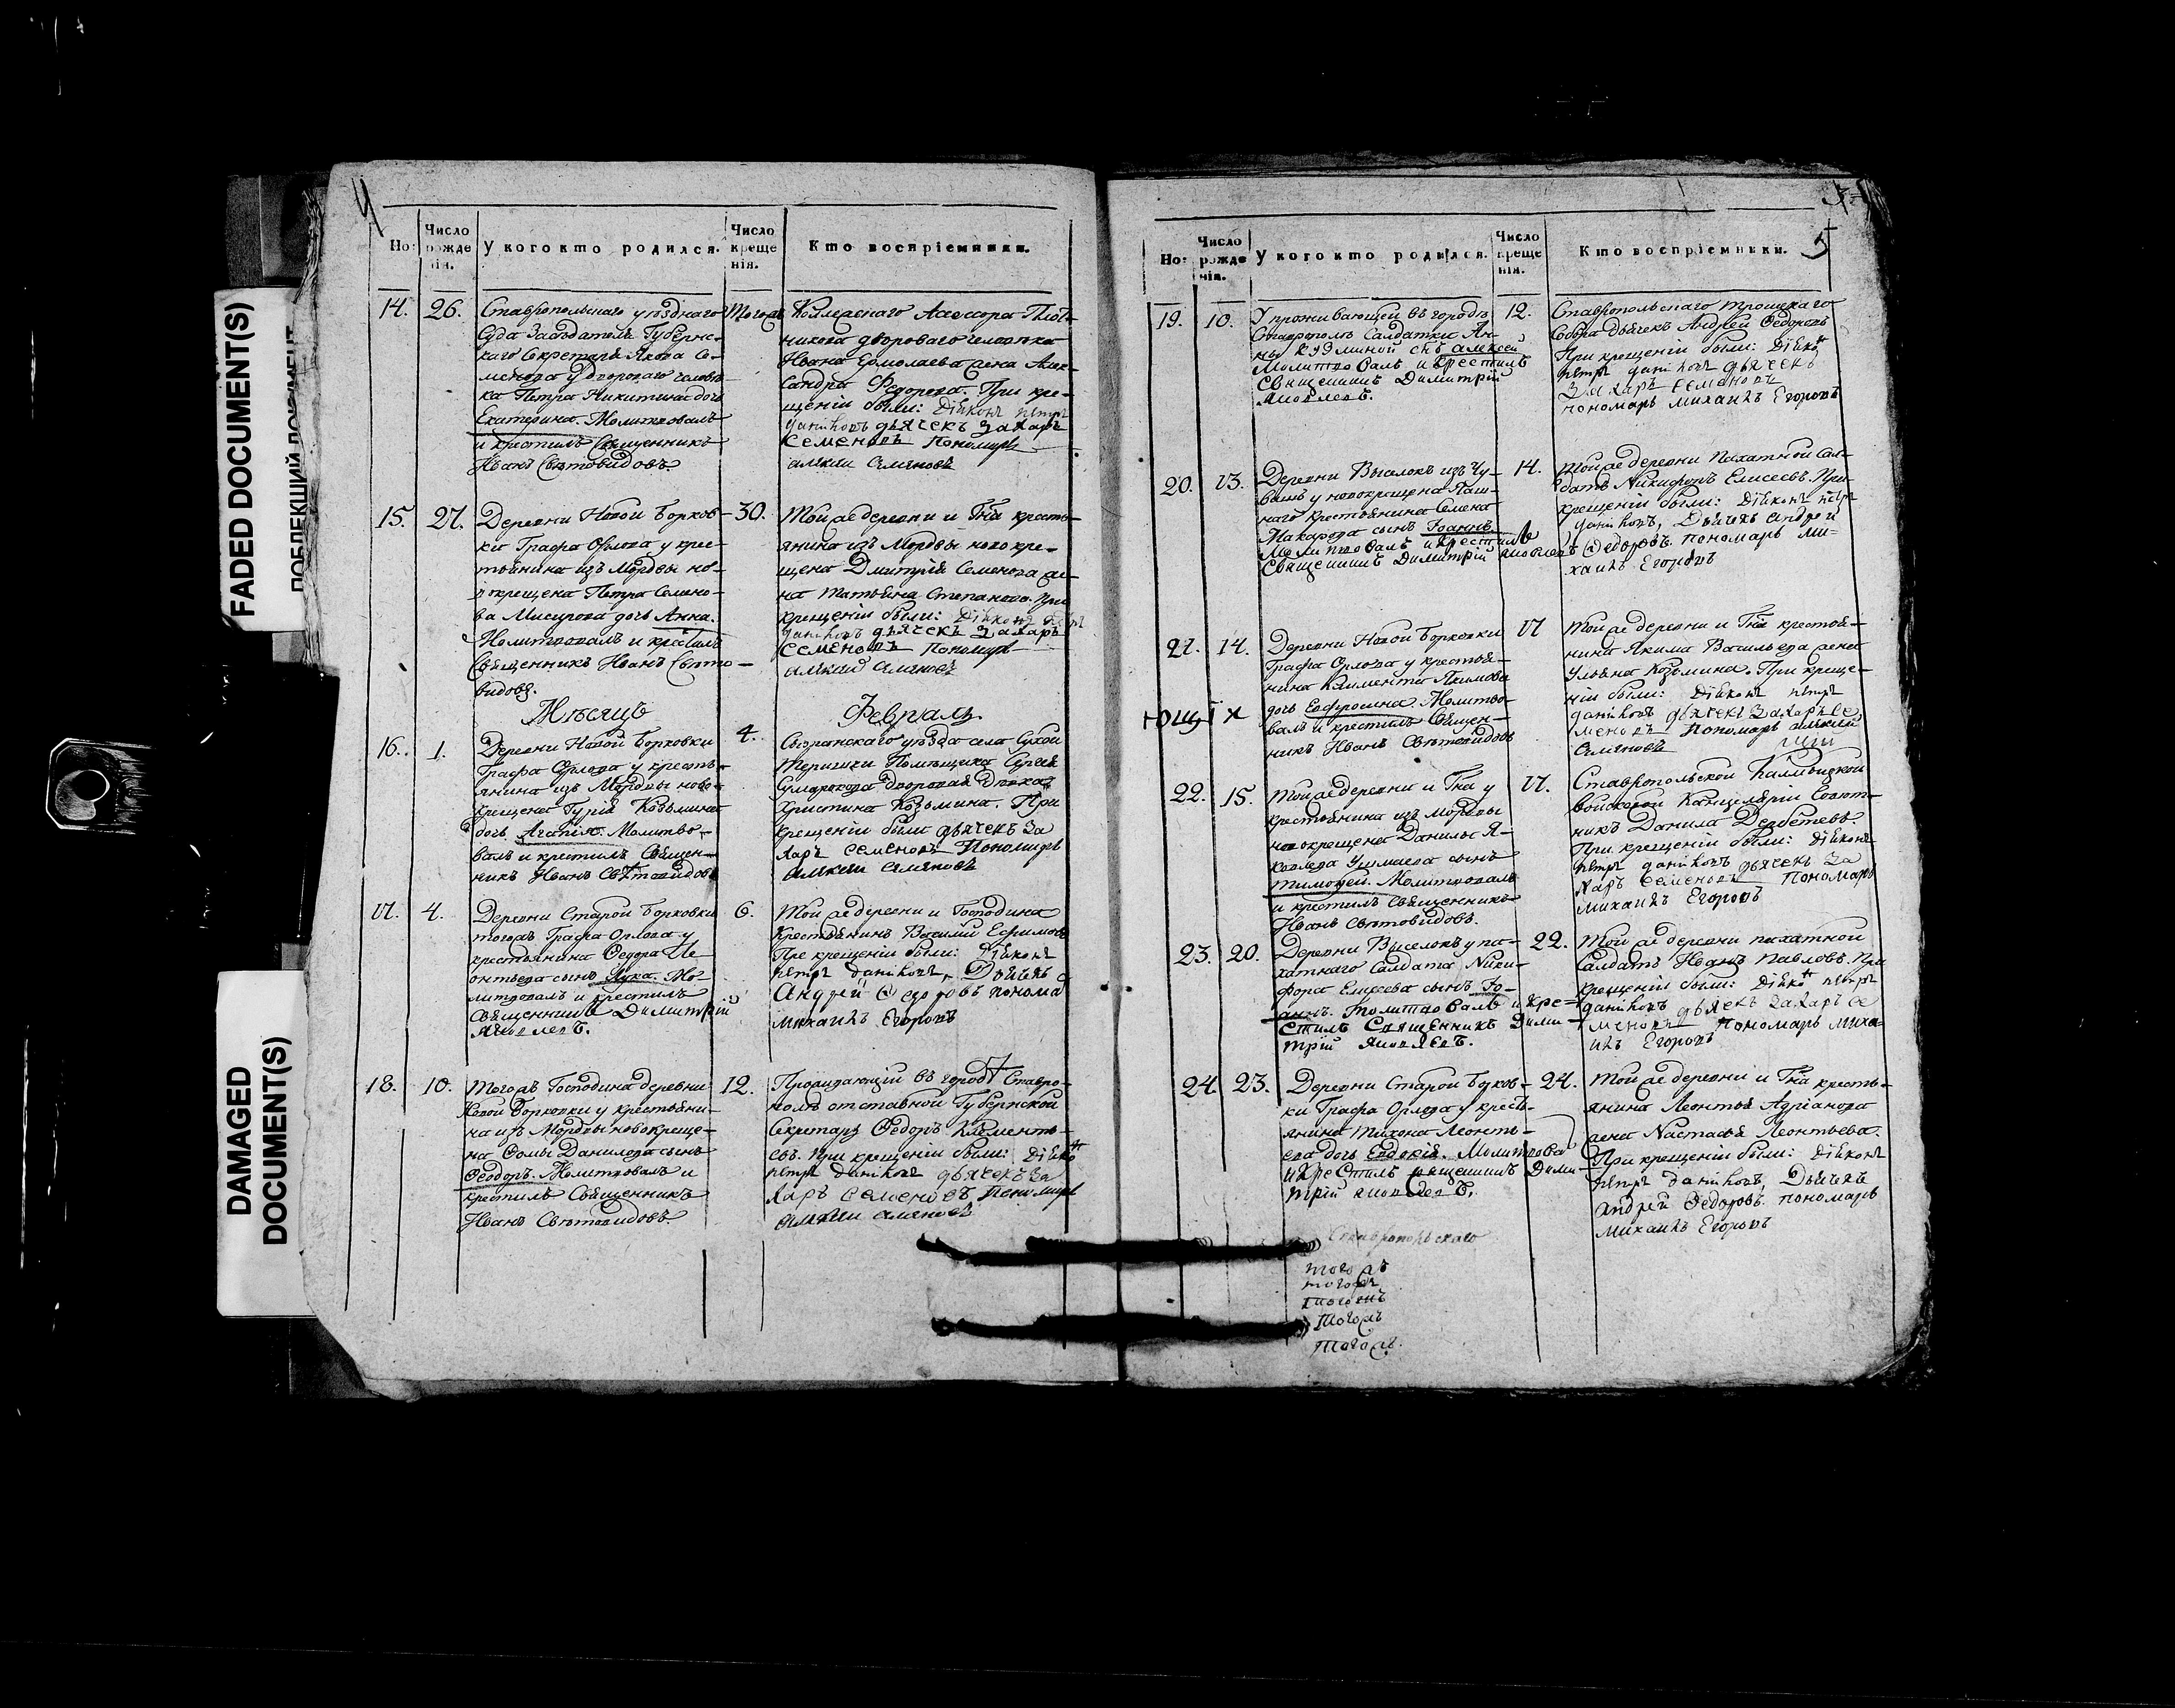 FADED DOCUMENT(S)
ПОБЛЕКШИЙ ДОКУМЕНТ
DAMAGED
DOCUMENT(S)
4
Но:
Число рожде нія.
У кого кто родился.
Число креще нія.
Кто воспріемники.
14.
26.
Ставропольскаго уѣзднаго
Суда Засѣдателя Губернс-
каго Секретаря Якова Се-
менова у двороваго человѣ-
ка Петра Никитина дочь
Екатерина. Молитвовалъ
и крестилъ Священникъ
Иванъ Святовидовъ.
Тогожъ
Коллежскаго Асессора Плот-
никова двороваго человѣка
Ивана Ермолаева жена Алек-
сандра Федорова. При кре-
щеніи были: Діяконъ петръ
даниловъ дьячекъ Захаръ
Семеновъ Пономарь
алексѣй Семяновъ
15.
27.
Деревни Новой Борков-
ки Графа Орлова у крес-
тьянина изъ Мордвы но-
вокрещена Петра Семено-
ва дочь Анна.
Молитвовалъ и крестилъ
Священникъ Иванъ Свято-
видовъ.
30.
Тойже деревни и Гна кресть-
янина изъ Мордвы новокре-
щена Дмитрія Семенова же-
на Татьяна Степанова. При
крещеніи были: Діяконъ петръ
даниловъ дьячекъ Захаръ
Семеновъ Пономарь
алексѣй Семяновъ
Мѣсяцъ
Февраль
16.
1.
Деревни Новой Борковки
Графа Орлова у кресть-
янина изъ Мордвы ново-
крещена Гурія Козьмина
дочь Агапія. Молитво-
валъ и крестилъ Священ-
никъ Иванъ Святовидовъ
4.
Сызранскаго уѣзда села Сухой
Терешки Помѣщика Сергѣя
дворовая дѣвка
Христина Козьмина. При
крещеніи были дьячекъ За
харъ Семеновъ Пономарь
алексѣй Семяновъ
17.
4.
Деревни Старой Борковки
тогожъ Графа Орлова у
крестьянина Федора Ле-
онтьева сынъ Лука. Мо-
литвовалъ и крестилъ
Священникъ Димитрій
Яковлевъ.
6.
Той же деревни и Господина
Крестьянинъ Василій Ефимовъ
Пре крещеніи были: Діяконъ
петръ даниловъ, Дьячекъ
Андрей Федоровъ понома
михаилъ Егоровъ
18.
10.
Тогожъ Господина деревни
Новой Борковки у крестьяни-
на изъ Мордвы новокреще-
на Фомы Данилова сынъ
Феодоръ. Молитвовалъ и
крестилъ Священникъ
Иванъ Святовидовъ.
12.
Проживающій въ городѣ Ставро-
полѣ отставной Губернской
Секретарь Федоръ Клименть-
евъ. При крещеніи были: Діяконъ
петръ даниловъ дьячекъ За
харъ Семеновъ Пономарь
алексѣй Семяновъ
5
Но:
Число рожде нія.
У кого кто родился.
Число креще нія.
Кто воспріемники.
19.
10.
У проживающей въ городѣ
Ставрополѣ Салдатки Ан-
ны Кузминой сынъ алексѣй
Молитвовалъ и крестилъ
Священникъ Димитрій
Яковлевъ.
12.
Ставропольскаго Троицкаго
Собора Дьячекъ Андрей Федоровъ
При крещеніи были: Діяконъ
петръ даниловъ дьячекъ
Захаръ Семеновъ
пономарь михаилъ Егоровъ
20.
13.
Деревни Выселокъ изъ Чу-
вашъ у новокрещена Паш-
наго крестьянина Семена
Макарова сынъ Іоаннъ
Молитвовалъ и крестилъ
Священникъ Димитрій Яковлевъ
14.
Тойже деревни Пахатной Сал-
датъ Никифоръ Елисеевъ. При
крещеніи были: Діяконъ петръ
даниловъ, Дьячекъ андрей
Федоровъ. пономарь ми-
хаилъ Егоровъ
21.
14.
Деревни Новой Борковки
Графа Орлова у крестья-
нина Климента Якимова
дочь Евфросина. Молитво-
валъ и крестилъ Священ-
никъ Иванъ Святовидовъ
17
Той же деревни и Гна крестья-
нина Якима Васильева жена
Ульяна Козьмина. При креще-
ніи были: Діяконъ петръ
даниловъ дьячекъ Захаръ Се
меновъ Пономарь алексѣй
Семяновъ
ющіх
22.
15.
Тойже деревни и Гна у
крестьянина изъ Мордвы
новокрещена Данилы Я-
ковлева сынъ
Тимофей. Молитвовалъ
и крестилъ Священникъ
Иванъ Святовидовъ.
17.
Ставропольской Калмыцкой
войсковой Канцеляріи Совѣт-
никъ Данила Дербетевъ.
При крещеніи были: Діяконъ
петръ даниловъ дьячекъ За
харъ Семеновъ Пономарь
михаилъ Егоровъ
23.
20.
Деревни Выселокъ у па-
хатнаго Салдата Ники-
фора Елисеева сынъ Іо-
аннъ. Молитвовалъ и кре=
стилъ Священникъ Дими-
трій Яковлевъ.
22.
Той же деревни пахатной
Салдатъ Иванъ Павловъ. При
крещеніи были: Діяконъ петръ
даниловъ дьячекъ Захаръ Се
меновъ Пономарь миха-
илъ Егоровъ
24.
23.
Деревни Старой Борков-
ки Графа Орлова у кресть-
янина Тихона Леонть-
ева дочь Евдокія. Молитвовалъ
и крестилъ священникъ Дими-
трій Яковлевъ.
24.
Той же деревни и Гна кресть-
янина Леонтья Адріанова
жена Настасья Леонтьева.
При крещеніи были: Діяконъ
петръ даниловъ, Дьячекъ
андрей Федоровъ. пономарь
михаилъ Егоровъ
Ставропольскаго
тогожъ
тогожъ
тогожъ
Тогожъ
Тогожъ.